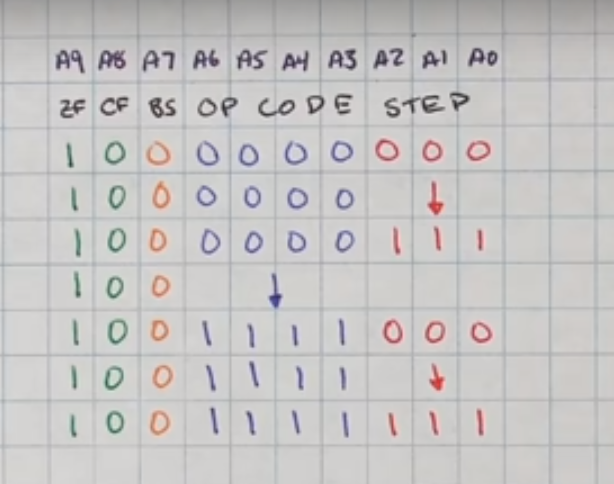 A9 A8 A7 A6 A5 A4 A3 A2 A1 A0
ZF CF BS OP CODE STEP
1 0 0 0 0 0 0 0 0 0
1 0 0 0 0 0 0 ↓
1 0 0 0 0 0 0 1 1 1
1 0 0 ↓
1 0 0 1 1 1 1 0 0 0
1 0 0 1 1 1 1 ↓
1 0 0 1 1 1 1 1 1 1